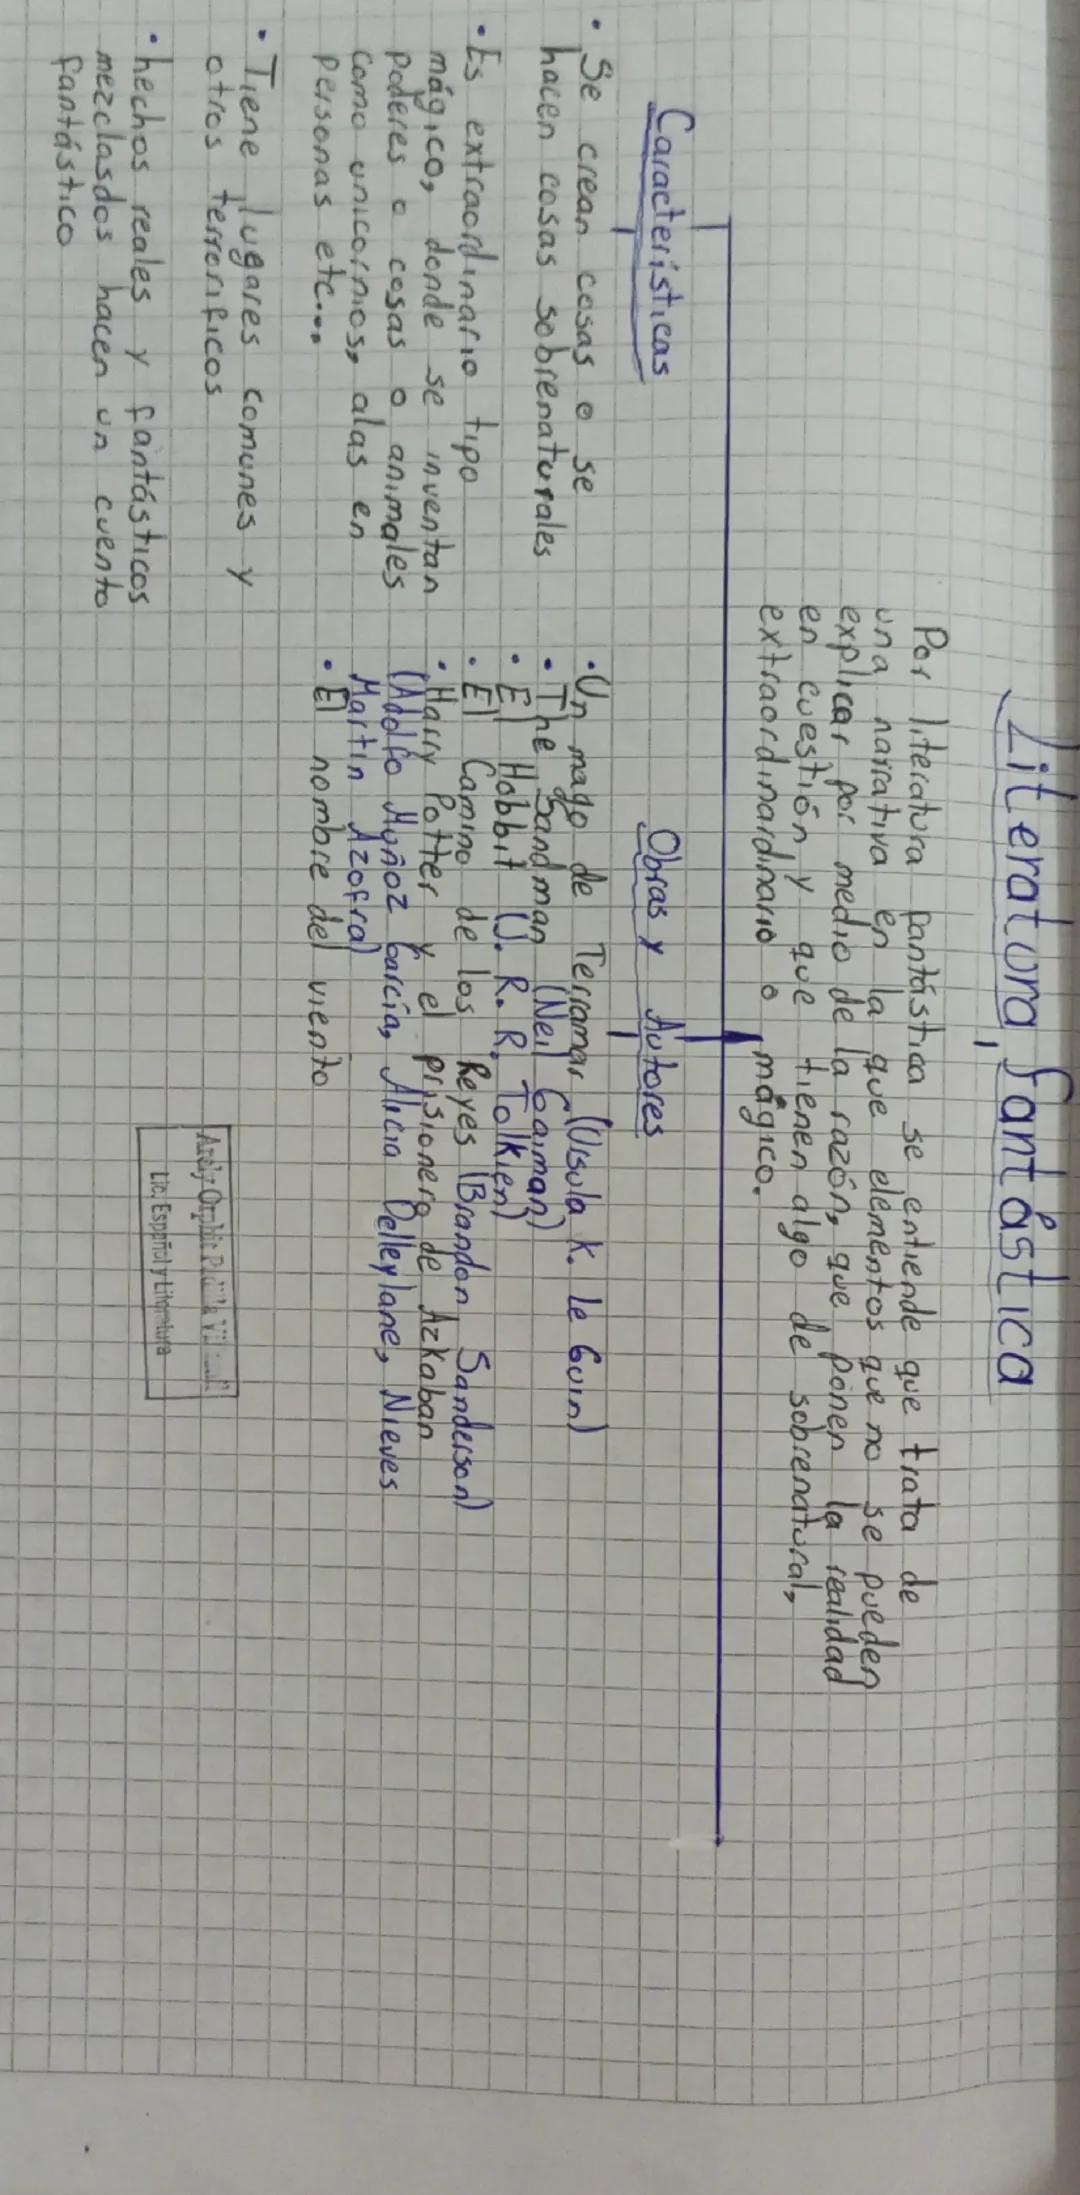 Literatura fantástica
Por literatura fantástica se entiende que trata de
una narrativa en la que elementos que no se pueden
explicar por medio de la razón, que ponen la realidad
en cuestión y que tienen algo de sobrenatural,
extraordinardinario o mágico.
Características
• Se crean cosas o se
hacen cosas sobrenaturales
• Es extraordinario tipo
mágico, donde se inventan
poderes o cosas o animales
como unicornios, alas en
personas etc...
• Tiene lugares comunes y
otros terrorificos
• hechos reales y fantásticos
mezclasdos hacen un cuento
fantástico
Obras y Autores
• Un mago de Terramar (Usula K. le Guin)
• The Sandman (Neil Gaiman)
• El Hobbit (J. R. R. Tolkien)
• El Camino de los Reyes (Brandon Sanderson)
• Harry Potter y el prisionero de Azkaban
(Adolfo Muñoz García, Alicia Delleylane, Nieves
Martin Azofra)
• El nombre del viento
Lic. Español y Literatura